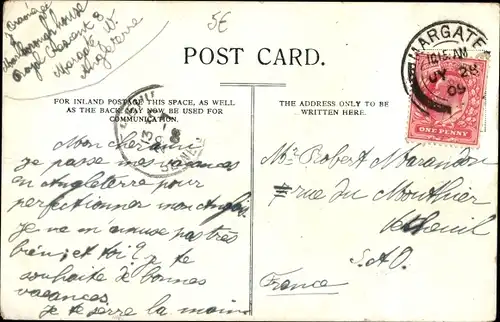 5€
Marlborough house
Margate W.
Angleterre
POST CARD.
FOR INLAND POSTAGE THIS SPACE, AS WELL
AS THE BACK MAY NOW BE USED FOR
COMMUNICATION.
THE ADDRESS ONLY TO BE
WRITTEN HERE.
MARGATE
10.15 AM
JY 28
09
ONE PENNY
Mon cher ami
je passe mes vacances
en Angleterre pour
perfectionner mon Anglais.
je ne m'amuse pas très
bien, et toi? je te
souhaite de bonnes
vacances.
je te serre la main
Mr Robert
rue du Mouthier
S. & O.
France